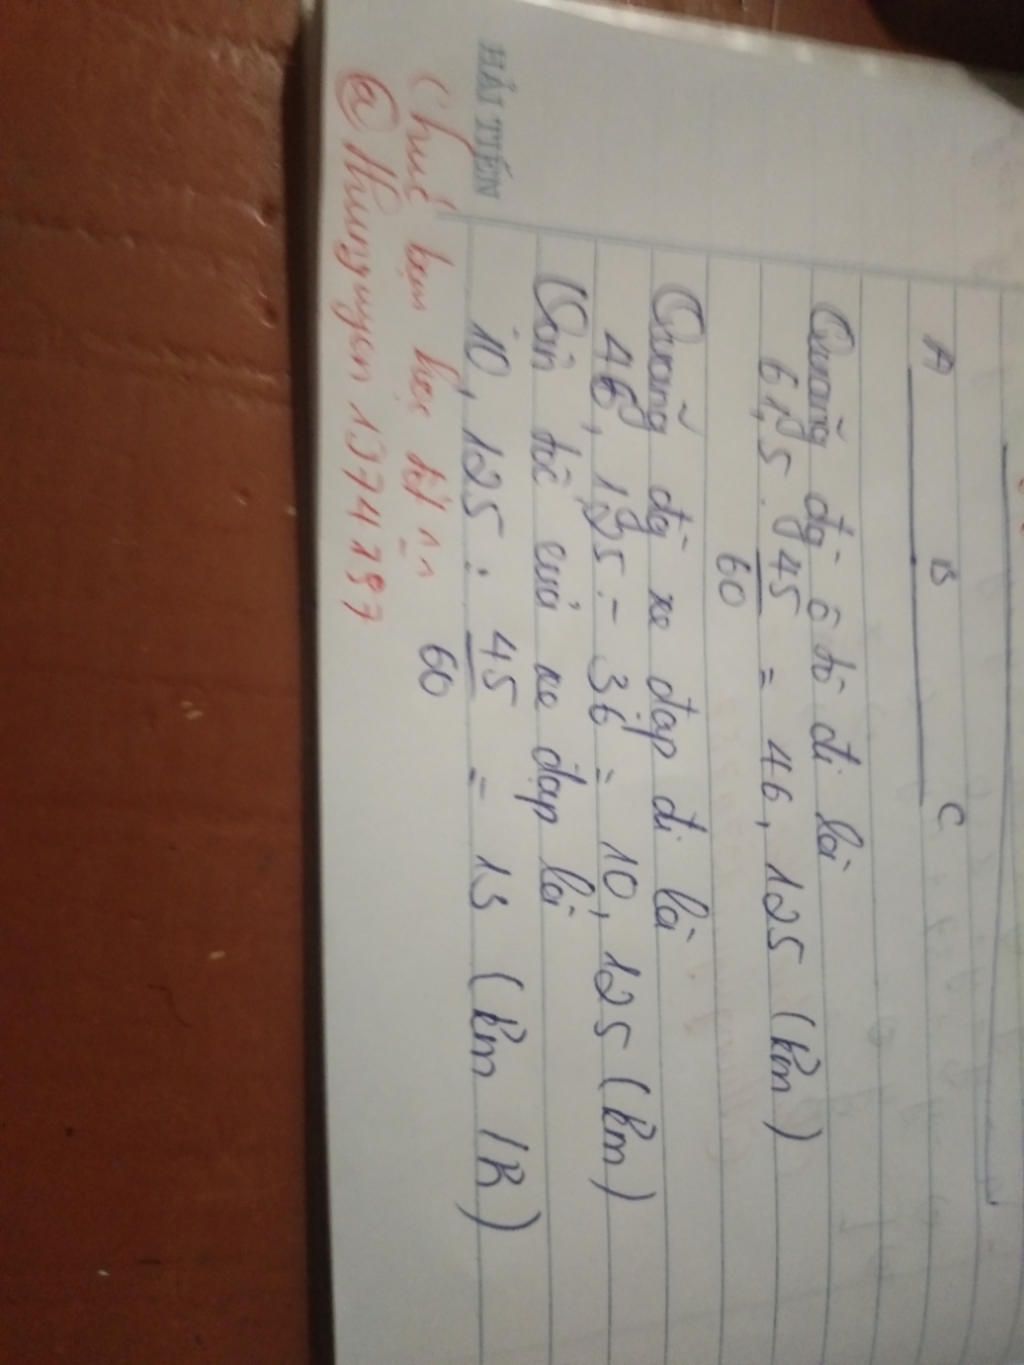 A B C
Quãng đg ô tô đi là
61,5 . 45/60 = 46,125 (km)
Quãng đg xe đạp đi là
46,125 - 36 = 10,125 (km)
Vận tốc của xe đạp là
10,125 : 45/60 = 13 (km/h)
HẢI TIẾN
Chúc bạn học tốt
@Nhungnguyen1374197